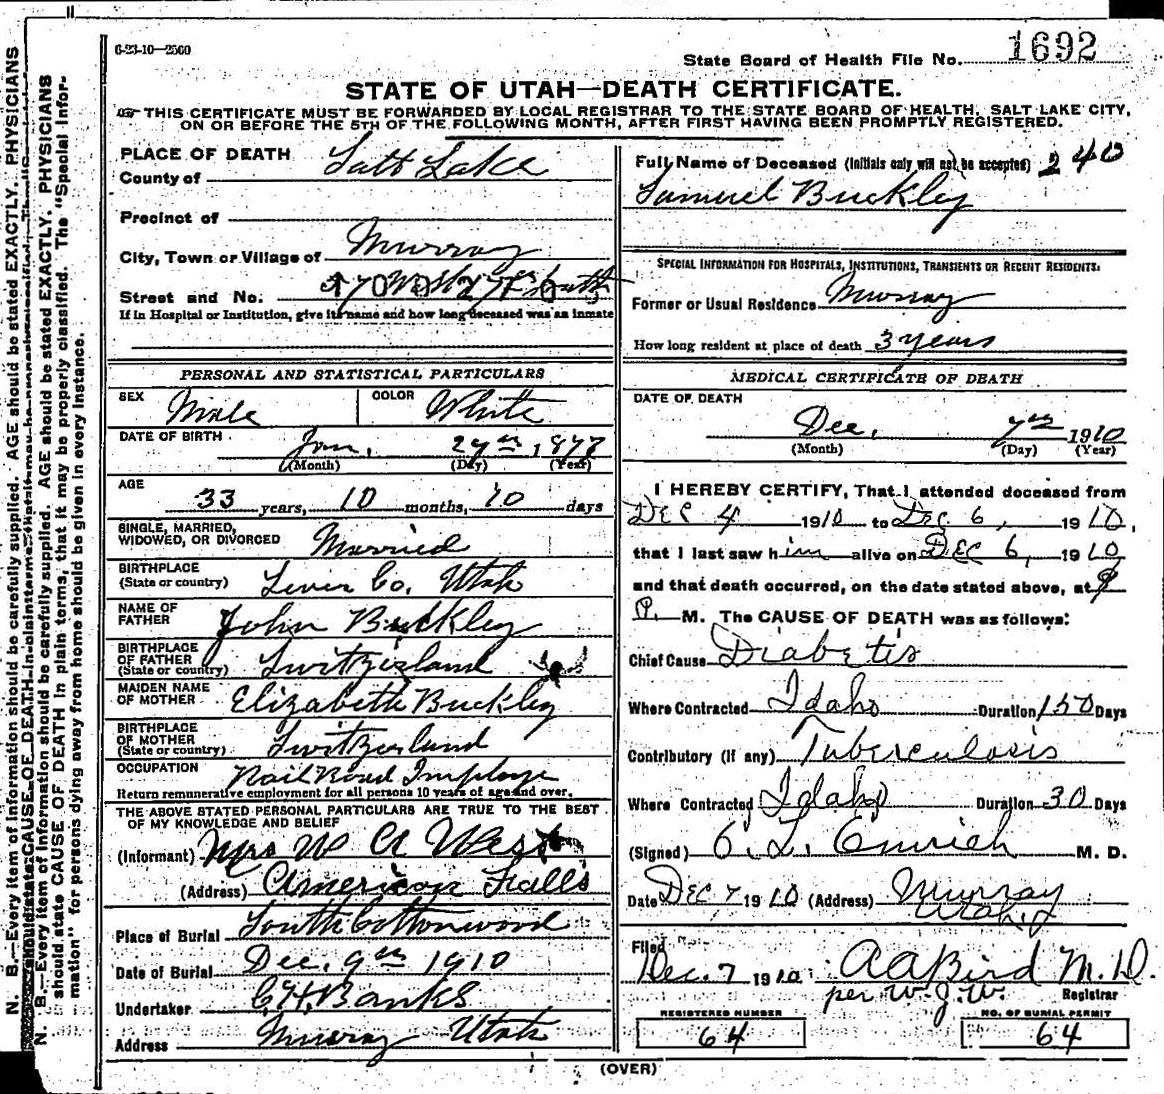 6-23-10—2500
State Board of Health File No. 1692
STATE OF UTAH—DEATH CERTIFICATE.
THIS CERTIFICATE MUST BE FORWARDED BY LOCAL REGISTRAR TO THE STATE BOARD OF HEALTH, SALT LAKE CITY,
ON OR BEFORE THE 5TH OF THE FOLLOWING MONTH, AFTER FIRST HAVING BEEN PROMPTLY REGISTERED.
PLACE OF DEATH
County of Salt Lake
Precinct of
City, Town or Village of Murray
Street and No. South
If in Hospital or Institution, give its name and how long deceased was an inmate
PERSONAL AND STATISTICAL PARTICULARS
SEX Male COLOR White
DATE OF BIRTH Jan. 27th, 1877
(Month) (Day) (Year)
AGE
33 years, 10 months, 10 days
SINGLE, MARRIED,
WIDOWED, OR DIVORCED Married
BIRTHPLACE
(State or country) Co, Utah
NAME OF
FATHER John Buckley
BIRTHPLACE
OF FATHER
(State or country) Switzerland
MAIDEN NAME
OF MOTHER Elizabeth Buckley
BIRTHPLACE
OF MOTHER
(State or country) Switzerland
OCCUPATION Rail Road Imploye
Return remunerative employment for all persons 10 years of age and over.
THE ABOVE STATED PERSONAL PARTICULARS ARE TRUE TO THE BEST
OF MY KNOWLEDGE AND BELIEF
(Informant) Mrs W A West
(Address) American Falls
Place of Burial South Cottonwood
Date of Burial Dec. 9th 1910
Undertaker C H Banks
Address Murray Utah
Full Name of Deceased (Initials only will not be accepted) 240
Samuel Buckley
SPECIAL INFORMATION FOR HOSPITALS, INSTITUTIONS, TRANSIENTS OR RECENT RESIDENTS:
Former or Usual Residence Murray
How long resident at place of death 3 years
MEDICAL CERTIFICATE OF DEATH
DATE OF DEATH
Dec. 7th 1910
(Month) (Day) (Year)
I HEREBY CERTIFY, That I attended deceased from
Dec 4 1910 to Dec 6, 1910,
that I last saw him alive on Dec 6, 1910
and that death occurred, on the date stated above, at 9
M. The CAUSE OF DEATH was as follows:
Chief Cause Diabetis
Where Contracted Idaho Duration 150 Days
Contributory (if any) Tuberculosis
Where Contracted Idaho Duration 30 Days
(Signed) M. D.
Date Dec 7 1910 (Address) Murray
Utah
Filed
Dec. 7 1910 A A Bird M. D.
per W. J. W. Registrar
REGISTERED NUMBER
64
NO. OF BURIAL PERMIT
64
(OVER)
N. B.—Every item of information should be carefully supplied. AGE should be stated EXACTLY. PHYSICIANS
N. B.—Every item of information should be carefully supplied. AGE should be stated EXACTLY. PHYSICIANS
should state CAUSE OF DEATH in plain terms, that it may be properly classified. The "Special Infor-
mation" for persons dying away from home should be given in every instance.